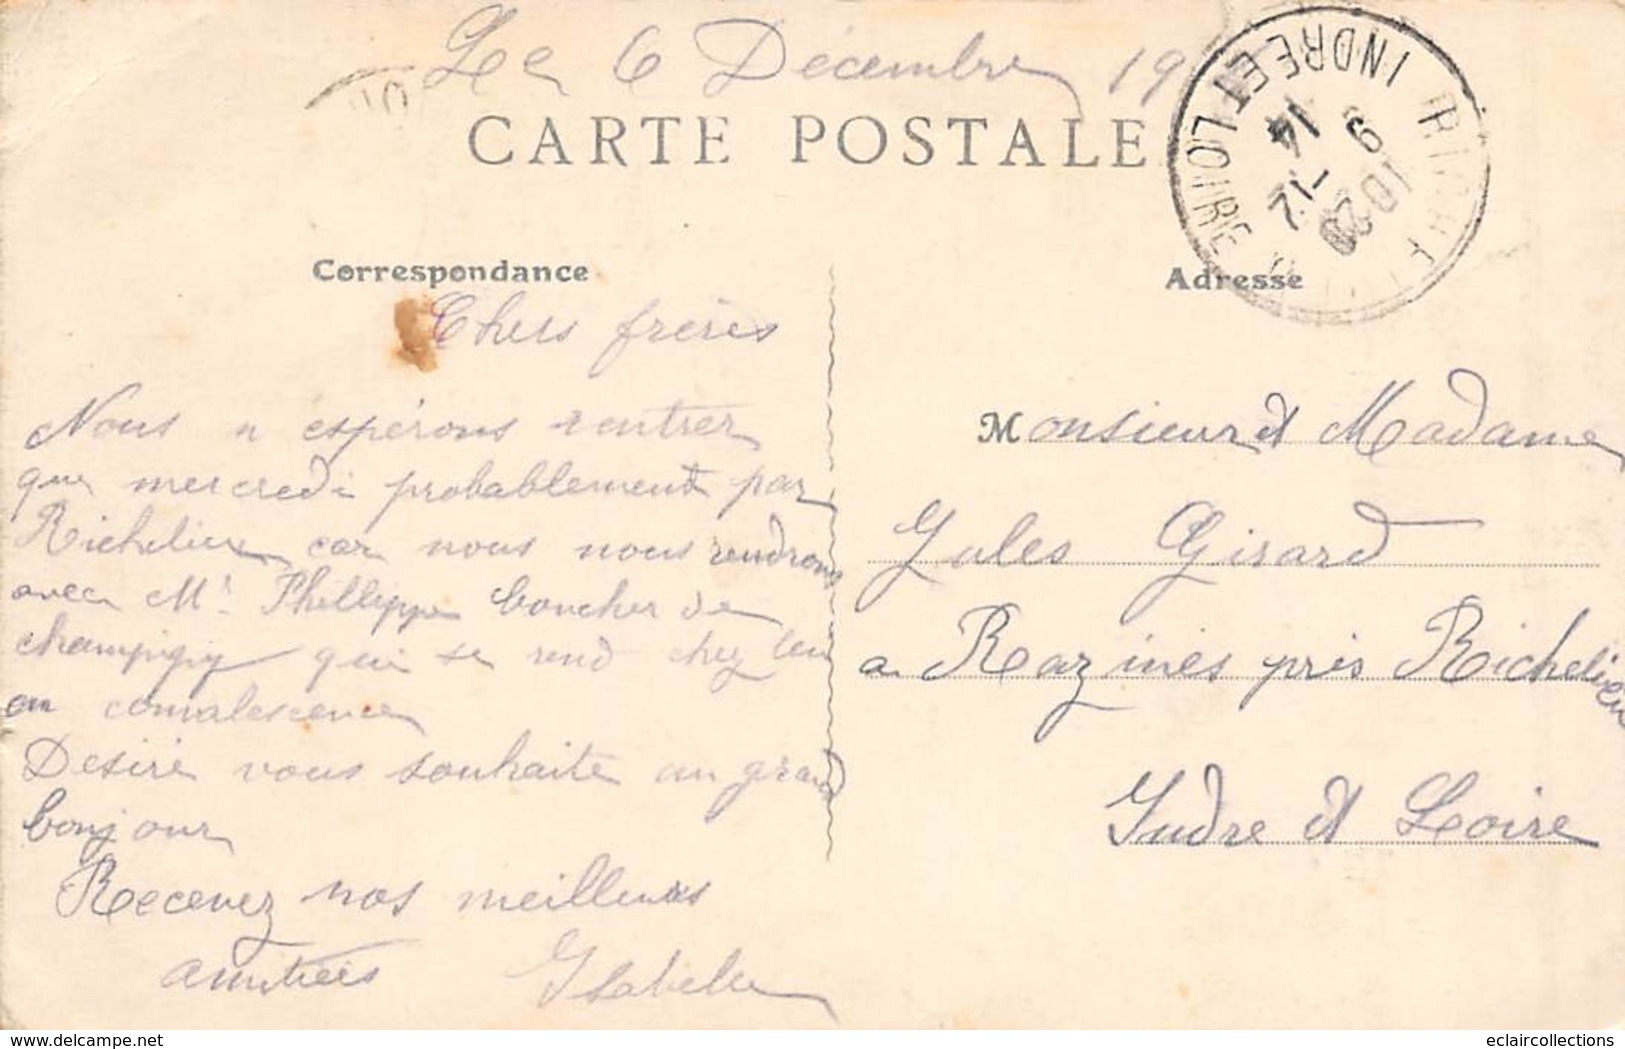 Le 6 Décembre 19
CARTE POSTALE
INDRE ET LOIRE
10 20
9 -12
14
Correspondance
Chers frères
Nous n espérons rentrer
que mercredi probablement par
Richelieu car nous nous rendrons
avec Mr. Phillippe boucher de
champigny qui se rend chez lui
en convalescence
Désiré vous souhaite un grand
bonjour
Recevez nos meilleures
amitiés Isabelle
Adresse
Monsieur et Madame
Jules Girard
a Razines près Richelieu
Indre et Loire
delcampe.net
eclaircollections